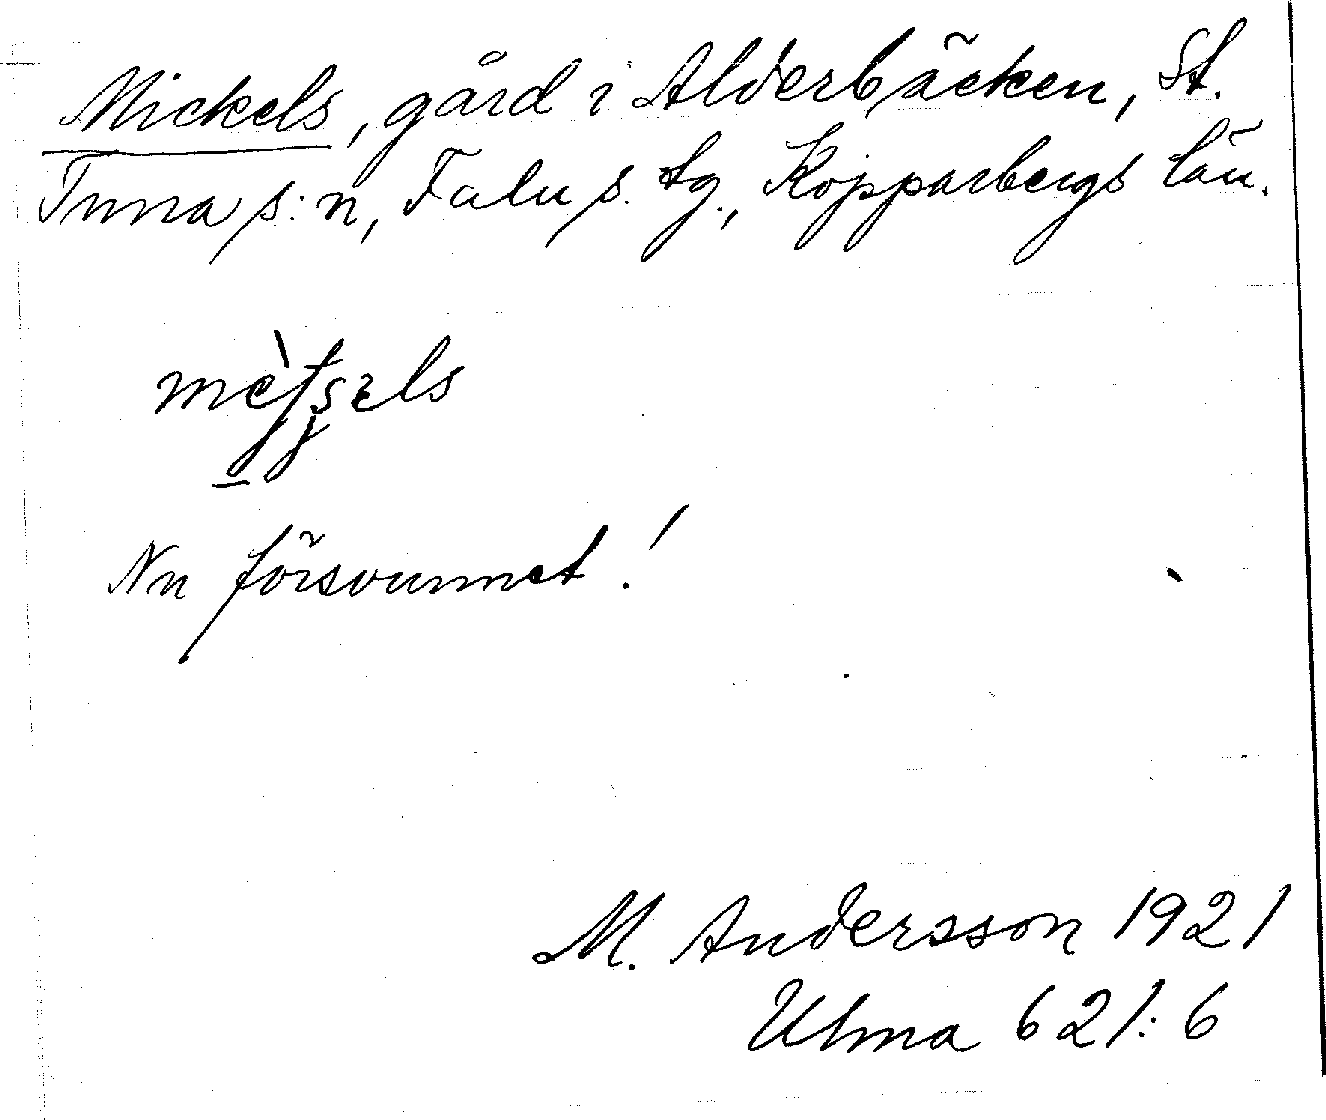 Mickels, gård i Alderbäcken, St.
Tuna s:n, Falu s. tg., Kopparbergs län.
Nu försvunnet!
M. Andersson 1921
Ulma 621:6